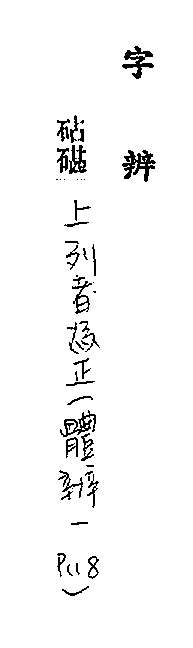 字辨
砧碪上列者為正(體辨一P118)